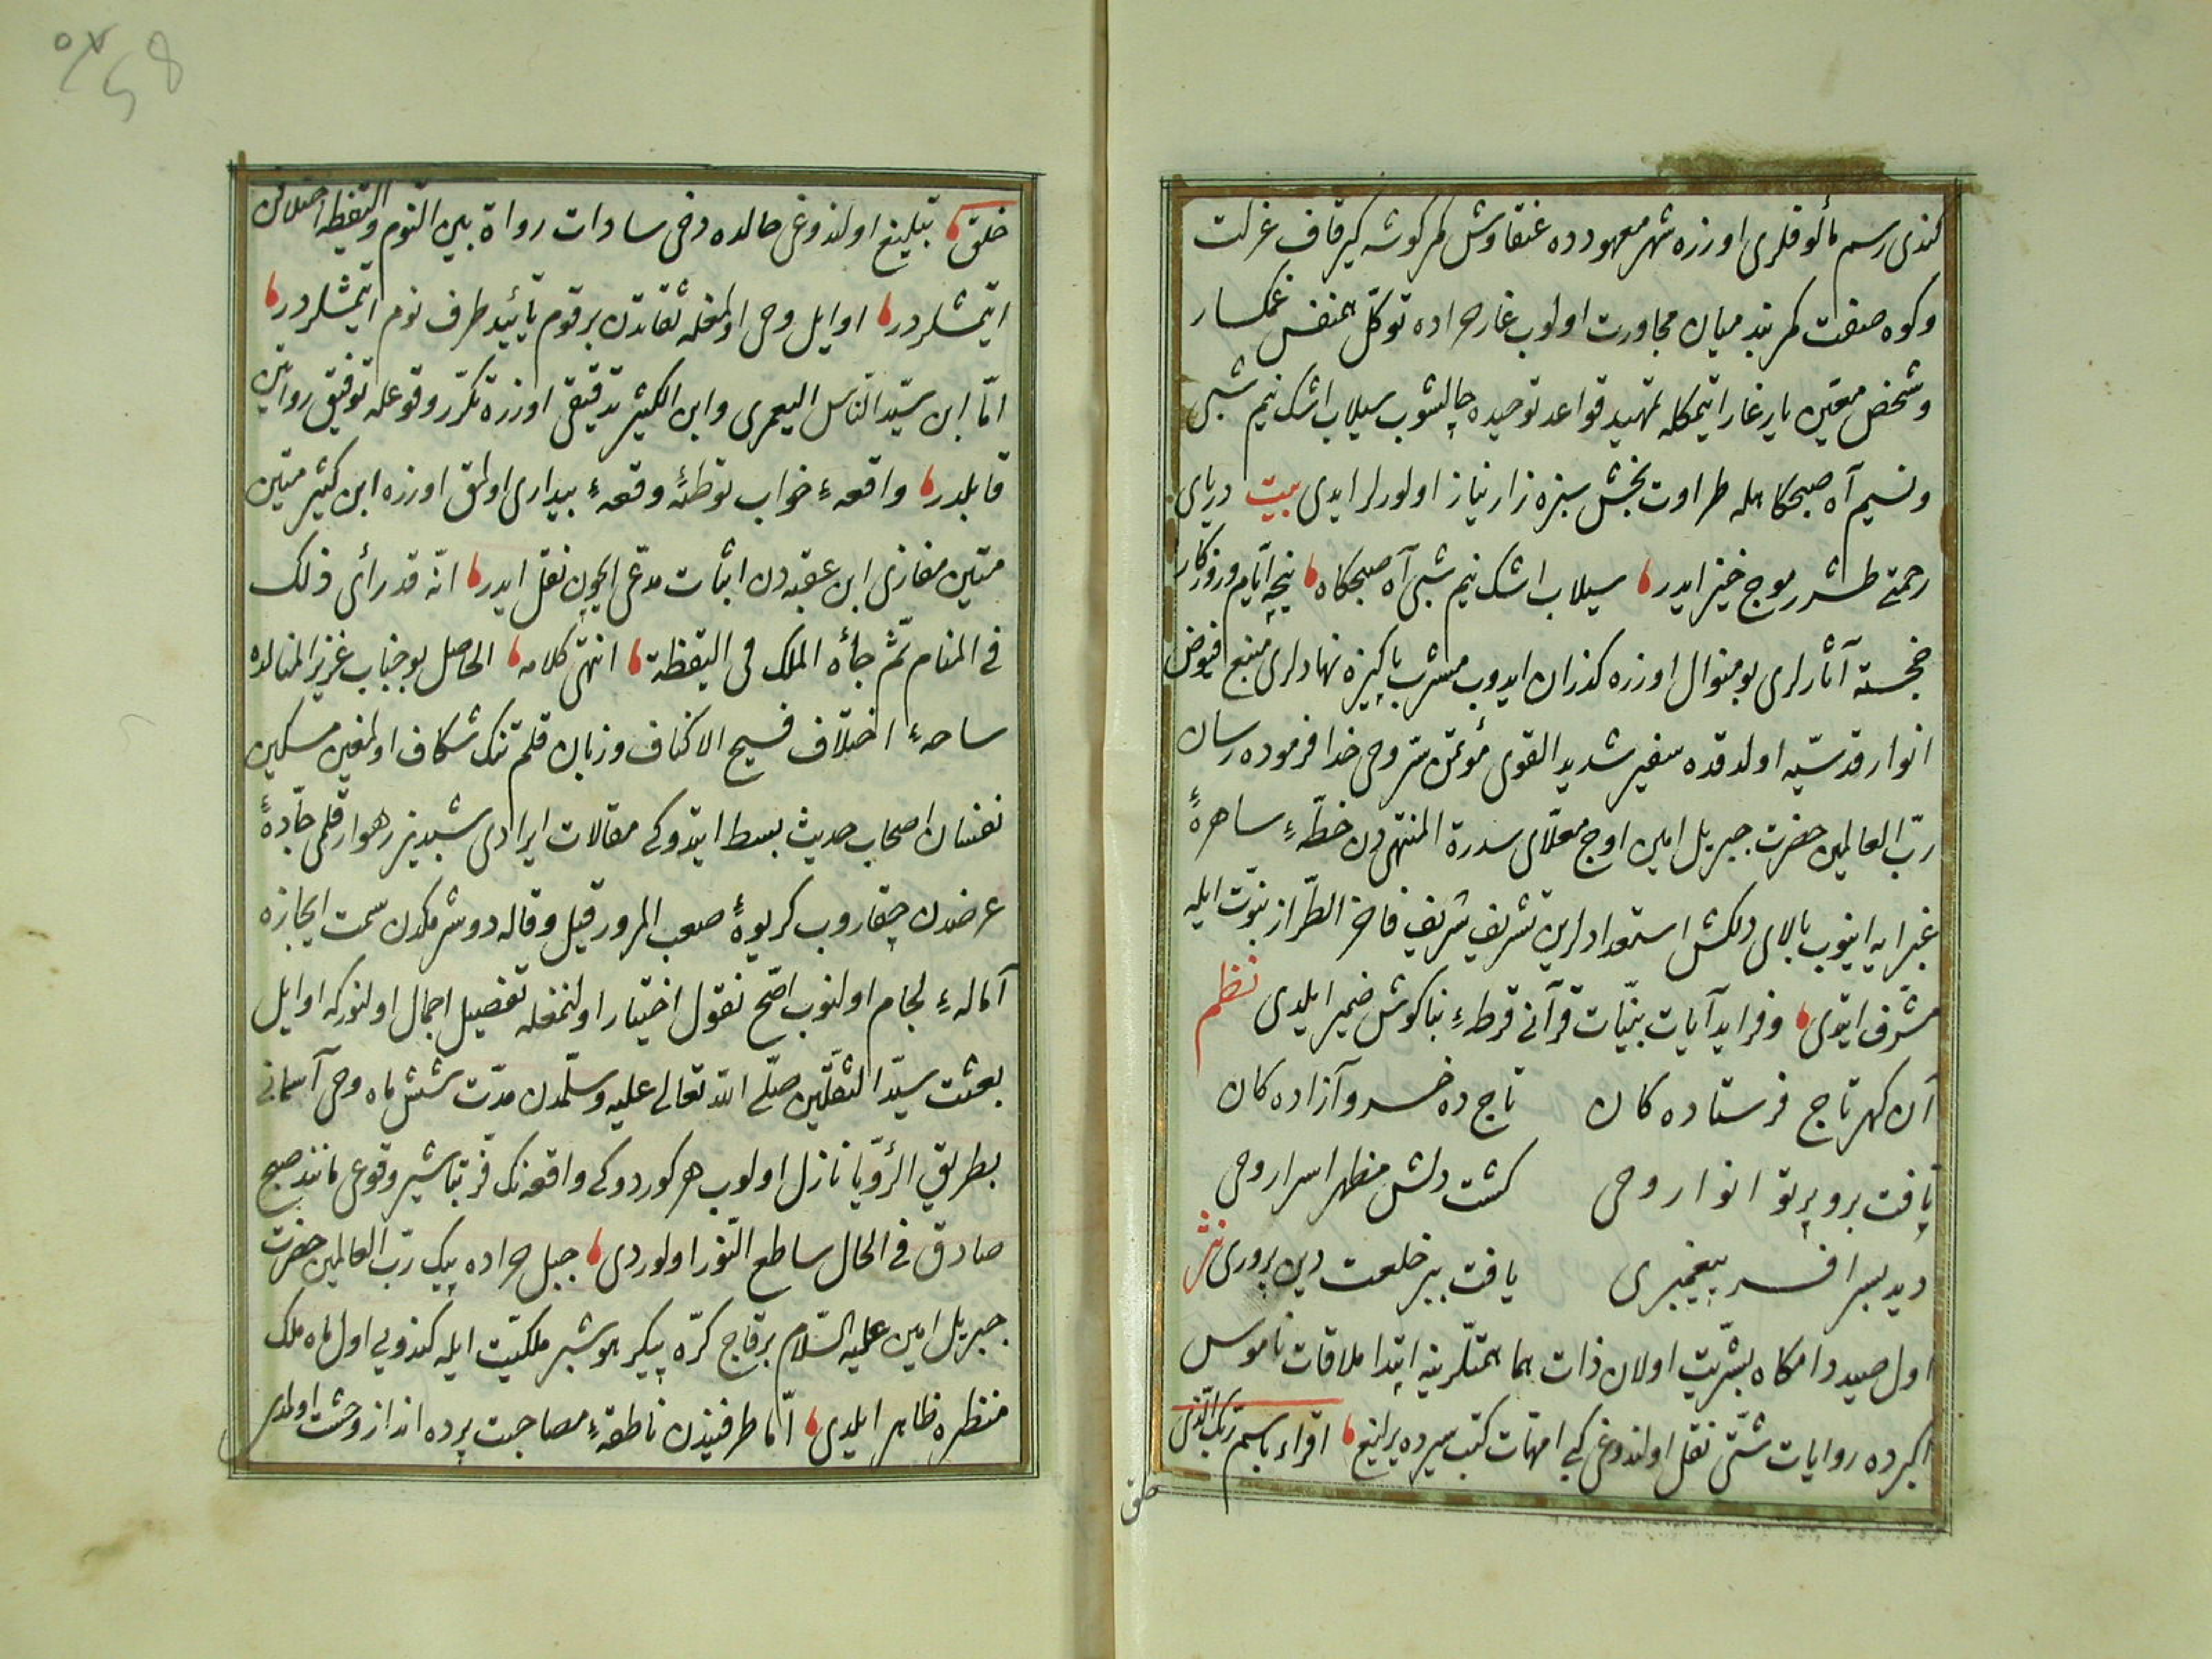 كندی رسم مألوفلری اوزره شهر معهودده عنقاوش هر كوشه كیر قاف عزلت
وكوه صفت كمربند میان مجاورت اولوب غار حراده توكّل همنفس غمكسار
وشخص معیّن یار غار ایتمكله تمهید قواعد توحیده چالیشوب سیلاب اشك نیم شبی
ونسیم آه صبحكاهله طراوت بخش سبزه زار نیاز اولورلر ایدی بیت دریای
رحمتے طشرر موج خیز ایدر سیلاب اشك نیم شبی آه صبحكاه نیجه ایّام وروزكار
خجسته آثارلری بو منوال اوزره كذران ایدوب مشرب پاكیزه نهادلری منبع فیوض
انوار قدسیّه اولدقده سفیر شدید القوی مؤتمن سرّ وحی خدا فرموده رسان
ربّ العالمین حضرت جبریل امین اوج معلّای سدرة المنتهی دن خطّهٔ ساهرهٔ
غبرایه اینوب بالای دلكش استعدادلرین تشریف شریف فاخر الطّراز نبوّت ایله
مشرّف ایتدی وفراید آیات بیّنات قرآنی قرطهٔ بناكوش ضمیر ایلدی نظم
آن كهر تاج فرستاده كان تاج ده خسرو آزاده كان
یافت برو پرتو انوار وحی كشت دلش مظهر اسرار وحی
دید بسر افسر پیغمبری یافت ببر خلعت دین پروری نثر
اول صید دامكاه بشریّت اولان ذات هما همتلرینه ابتدا ملاقات ناموس
اكبرده روایات شتّی نقل اولندوغی كبی امّهات كتب سیرده یرلیغ اقراء باسم ربّك الّذی
خلق
خلق تبلیغ اولندوغی حالده دخی سادات رواة بین النّوم والیقظه اختلاف
ایتمشلردر اوایل وحی اولمغله ثقاتدن بر قوم تأیید طرف نوم ایتمشلردر
امّا ابن سیّد النّاس الیعمری وابن الكثیر تدقیقی اوزره تكرّر وقوعله توفیق روایتین
قابلدر واقعهٔ خواب توطئهٔ وقعهٔ بیداری اولمق اوزره ابن كثیر متین
متین مغازی ابن عقبه دن اثبات مدّعی ایچون نقل ایدر انّه قد رأی ذلك
فی المنام ثمّ جأه الملك فی الیقظة انتهی كلامه الحاصل بو جناب عزیز المنالده
ساحهٔ اختلاف فسیح الاكناف وزبان قلم تنك شكاف اولمغین مسكین
نفسان اصحاب حدیث بسط ایتدوكی مقالات ایرادی شبدیز رهوار قلمی جادّهٔ
غرضدن چیقاروب كریوهٔ صعب المرور قیل وقاله دوشرمكدن سمت ایجازه
امالهٔ لجام اولنوب اصّح نقول اختیار اولنمغله تفصیل اجمال اولنوركه اوایل
بعثت سیّد الثّقلین صلّی الله تعالی علیه وسلّمدن مدّت شش ماه وحی آسمانی
بطریق الرّؤیا نازل اولوب هر كوردوكی واقعه نك فرّ تباشیر وقوعی مانند صبح
صادق فی الحال ساطع النّور اولوردی جبل حراده پیك ربّ العالمین حضرت
جبریل امین علیه السّلام بر قاچ كرّه پیكر هوشبر ملكیّت ایله كندویی اول ماه ملك
منظره ظاهر ایلدی امّا طرفیندن ناطقهٔ مصاحبت پرده انداز وحشت اولمدی
٥٧
58